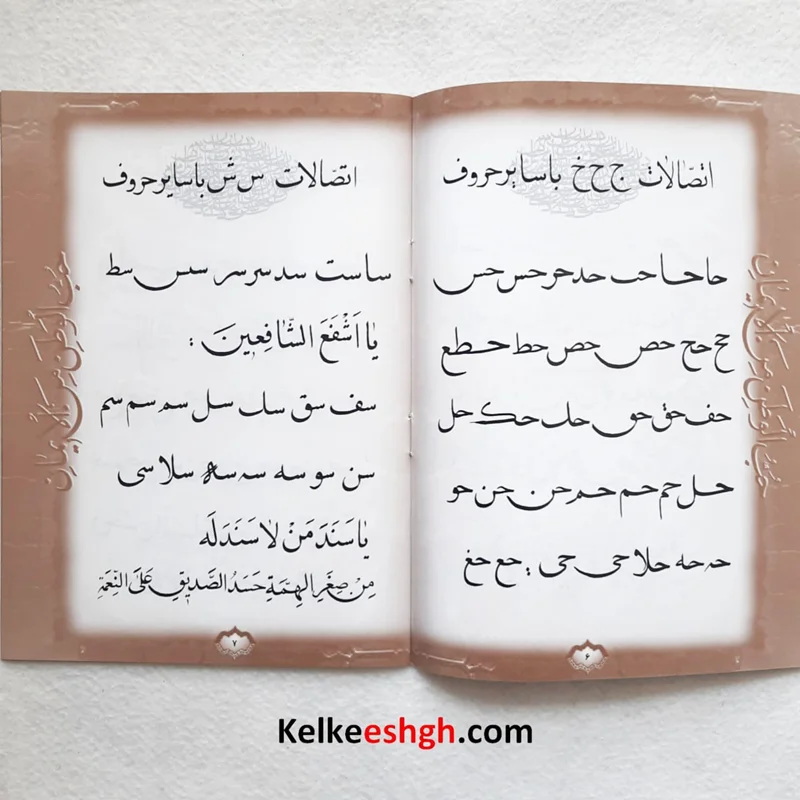 اتّصالات ج ح خ با سایر حروف
حا حـا حب حد حر حس حس
حج حج حص حص حط حطع
حف حق حق حك حك حل
حل حم حم حم حن حن حو
حه حه حلا حی حی ؛ حع حغ
حبّ الوطن من الایمان
۶
اتصالات س ش با سایر حروف
سا ست سد سر سر سس سط
یا اَشْفَعَ الشّافِعین ؛
سف سق سك سل سم سم سم
سن سو سه سه سه سلا سی
یا سَنَدَ مَنْ لا سَنَدَ لَه
مِن صِغَرِ الهِمّةِ حَسَدُ الصَّدیقِ عَلَی النِّعمَةِ
حبّ الوطن من الایمان
۷
Kelkeeshgh.com